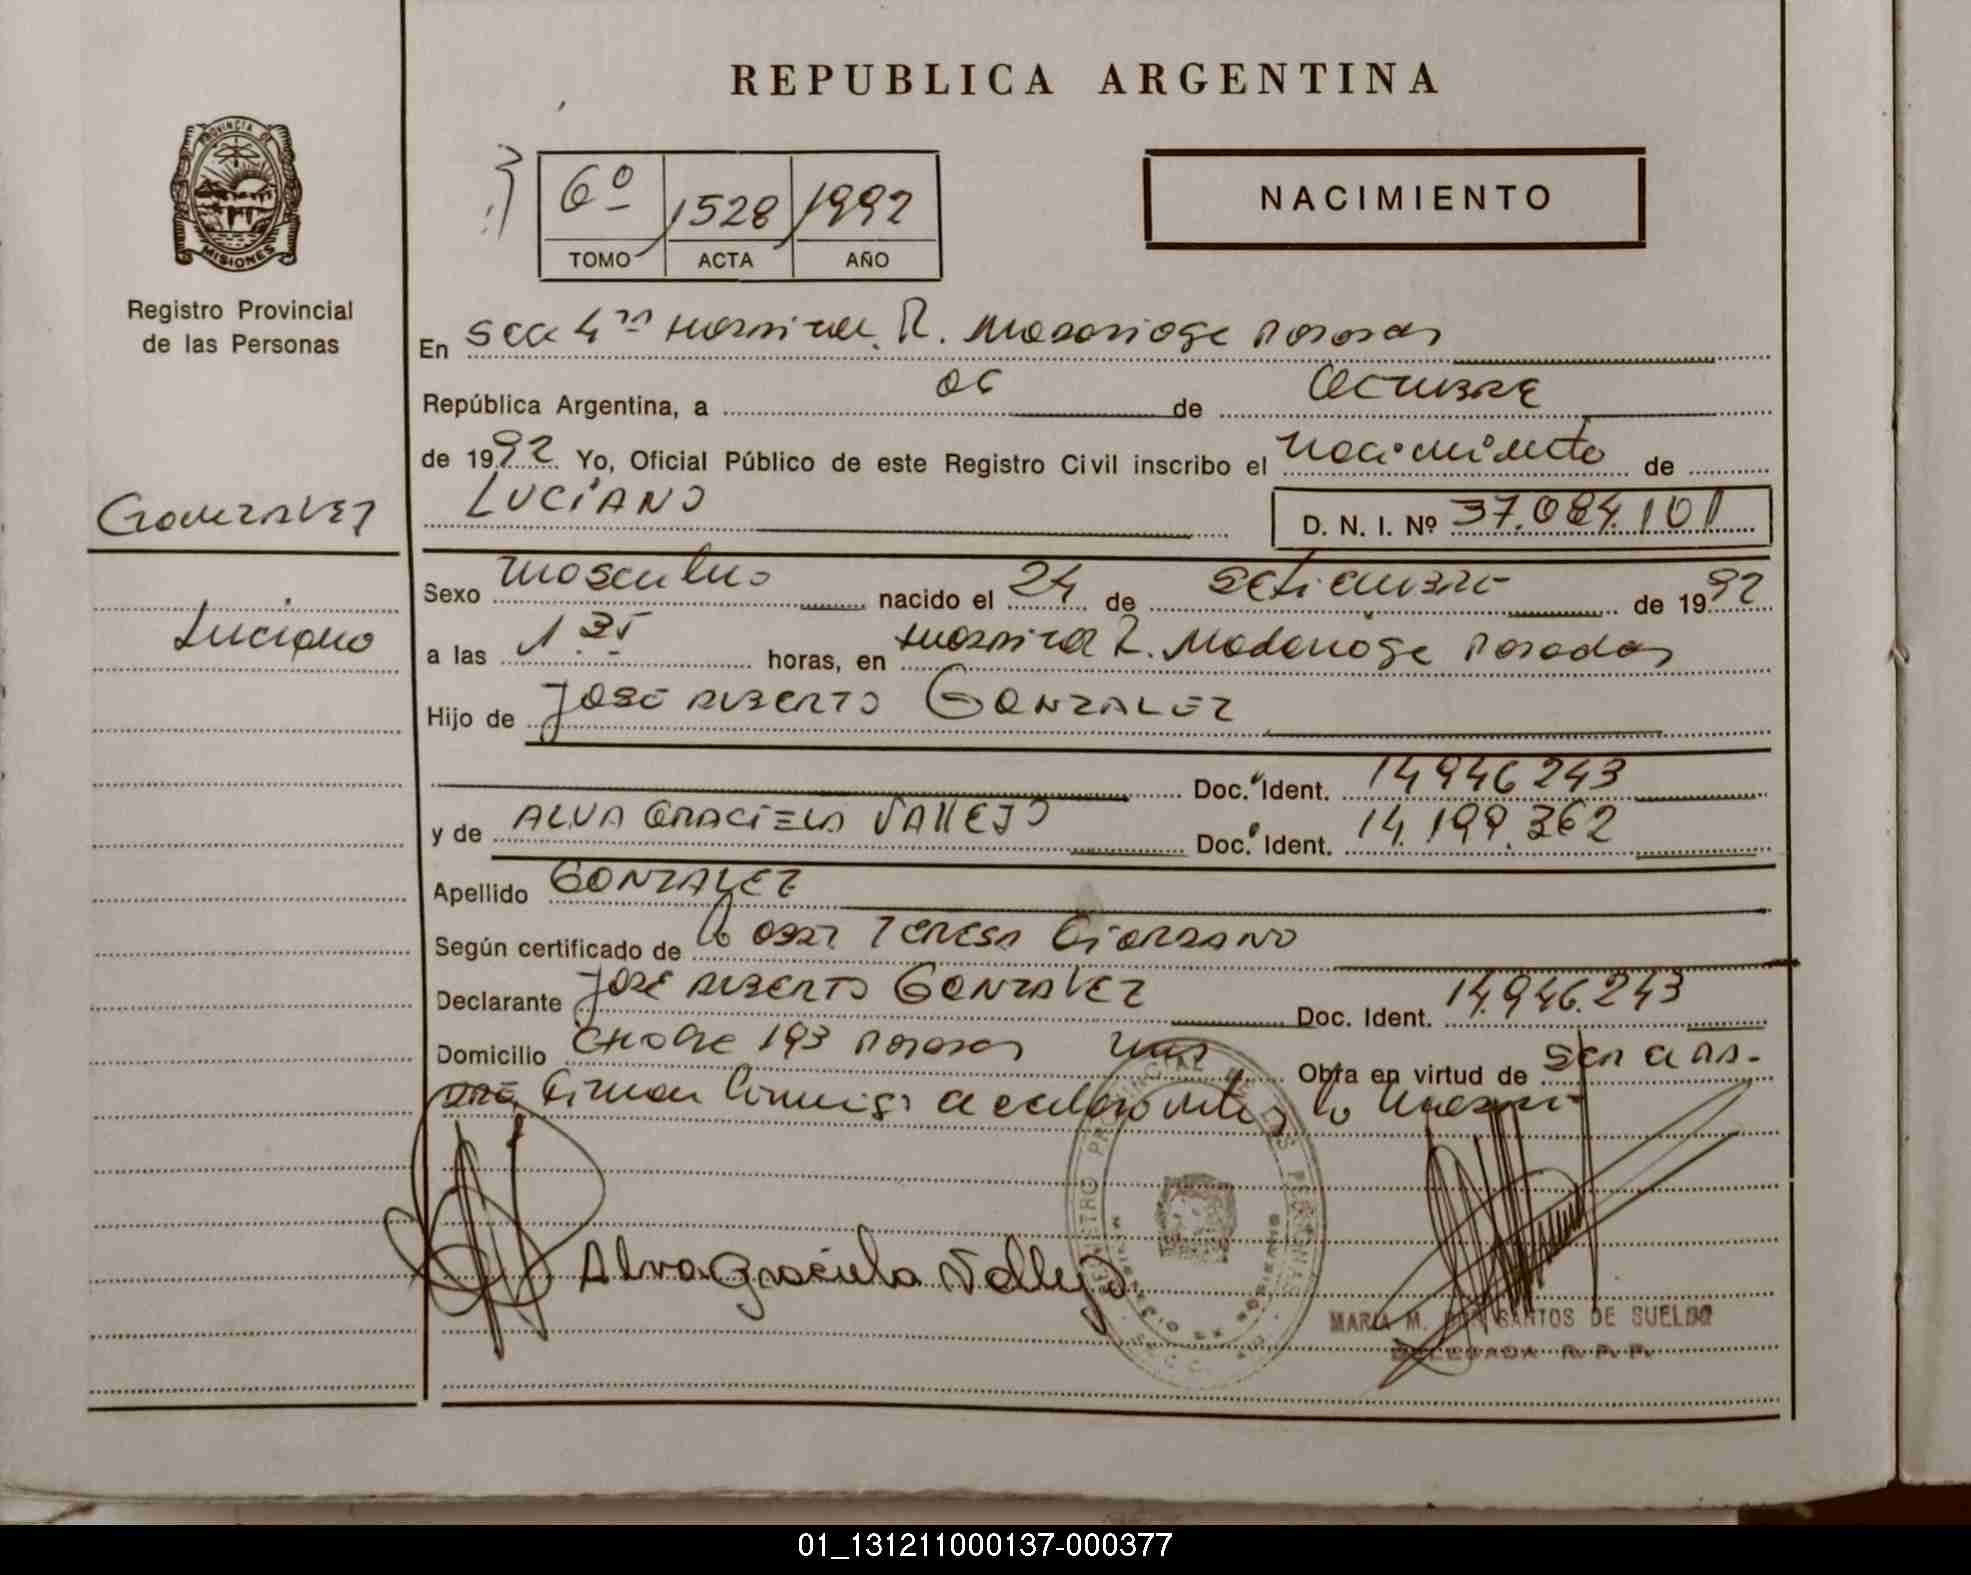 REPUBLICA ARGENTINA
PROVINCIA DE
MISIONES
Registro Provincial
de las Personas
6º 1528 1992
TOMO ACTA AÑO
NACIMIENTO
En Secc 4ta Hospital R. Madariaga Posadas
República Argentina, a 06 de Octubre
de 1992 Yo, Oficial Público de este Registro Civil inscribo el nacimiento de
Gonzalez
LUCIANO D. N. I. Nº 37.084.101
Luciano
Sexo masculino nacido el 24 de Setiembre de 1992
a las 1.35 horas, en Hospital R. Madariaga Posadas
Hijo de JOSE ALBERTO GONZALEZ
Doc. Ident. 14946243
y de ALVA GRACIELA VALLEJO Doc. Ident. 14.199.362
Apellido GONZALEZ
Según certificado de la TERESA GIORDANO
Declarante JOSE ALBERTO GONZALEZ Doc. Ident. 14.946.243
Domicilio 193 Posadas Obra en virtud de ser el pa-
dre firman conmigo el declarante y la
Alva Graciela Vallejo
REGISTRO PROVINCIAL DE LAS PERSONAS
MARIA M. SANTOS DE SUELDO
DELEGADA R. P. P.
01_131211000137-000377